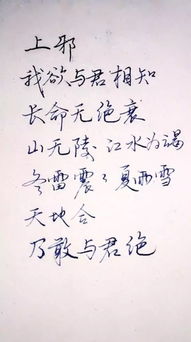 上邪
我欲与君相知
长命无绝衰
山无陵 江水为竭
冬雷震々夏雨雪
天地合
乃敢与君绝